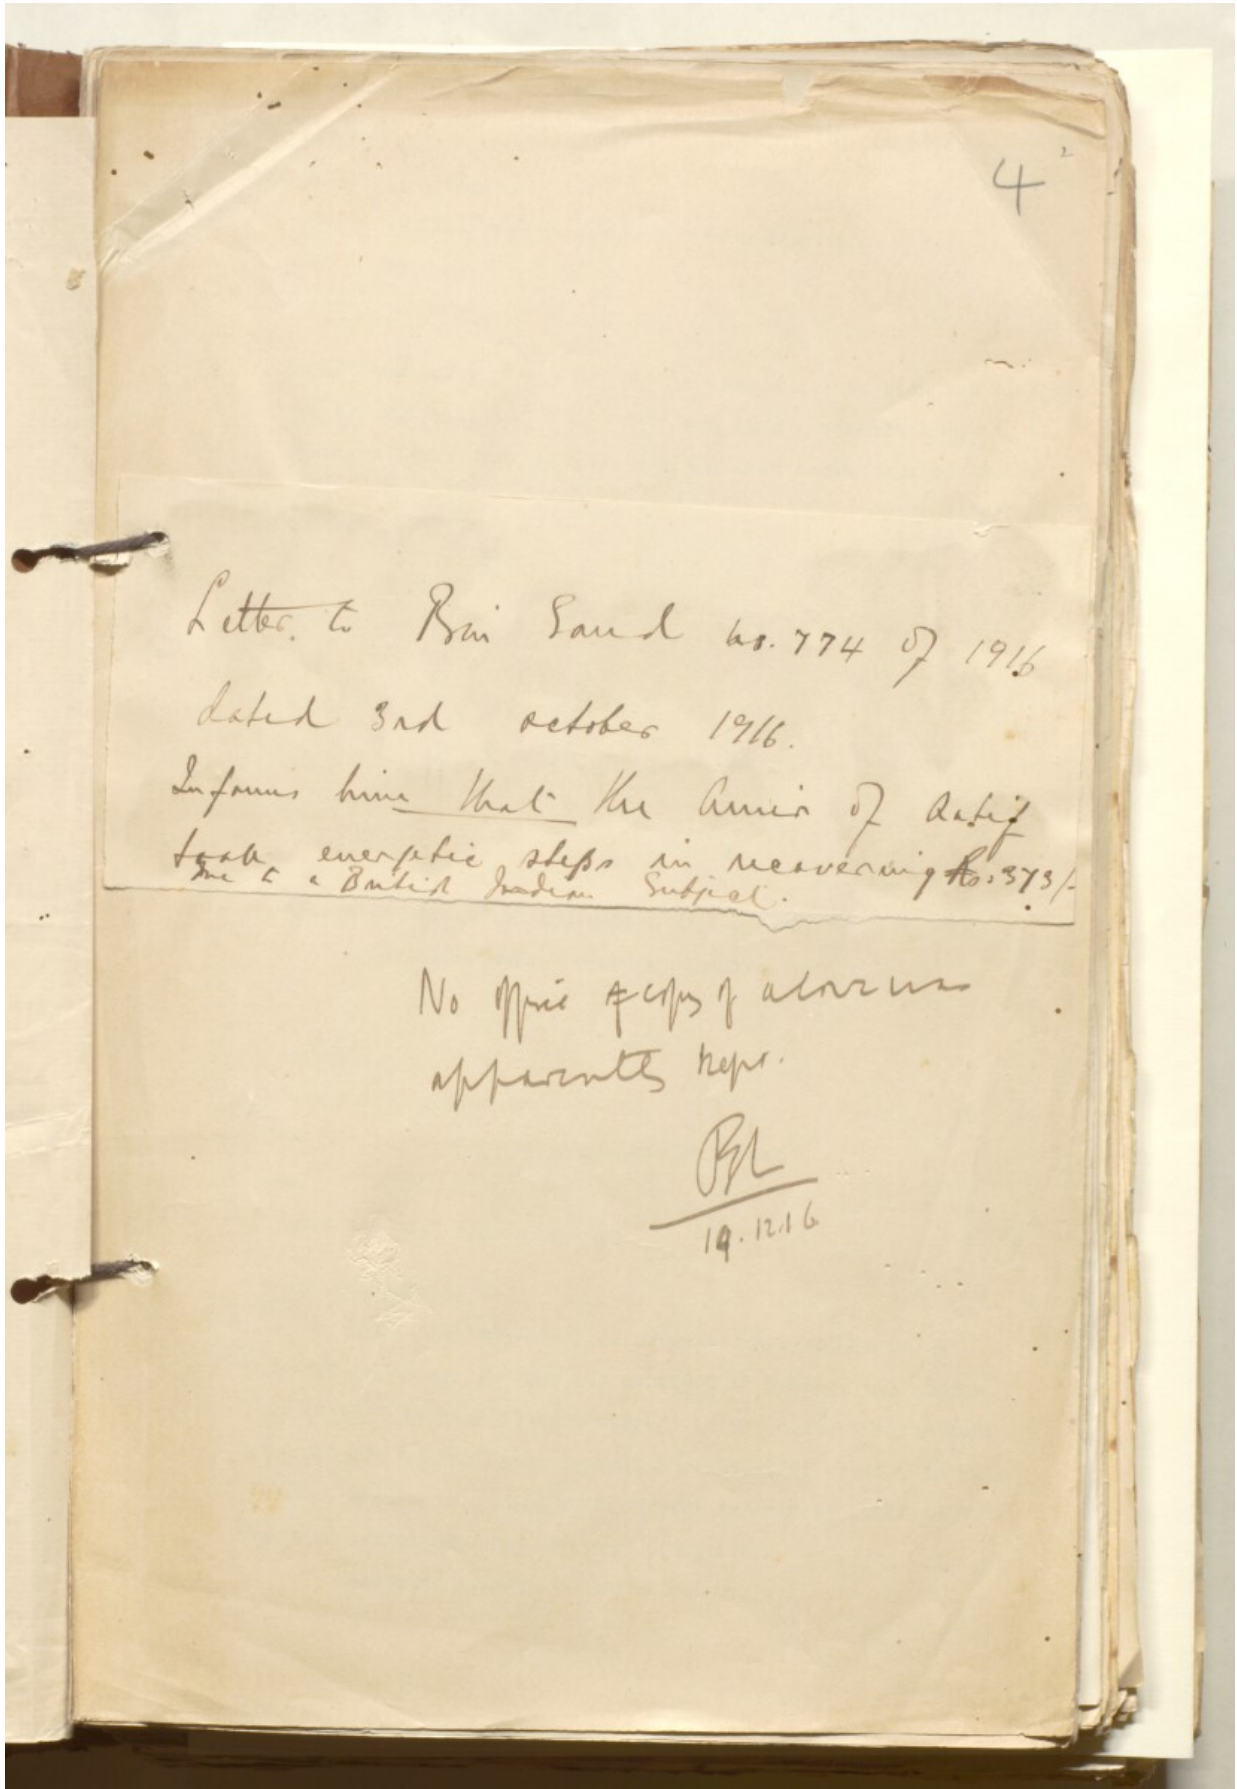 4
2
Letter to Bin Saud no. 774 of 1916
dated 3rd october 1916.
Informs him that the Amir of Qatif
took energetic steps in recovering Rs. 373/-
due to a British Indian Subject.
No office copy of above was
apparently kept.
19.12.16